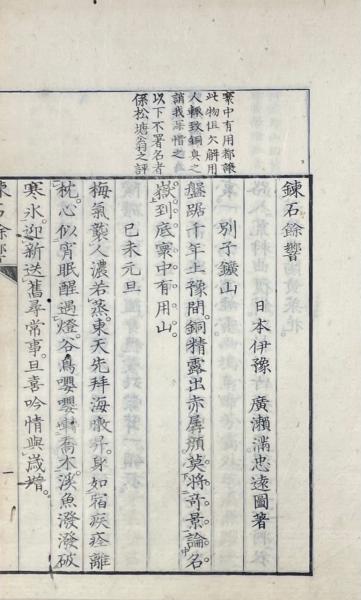 寰中有用都帳
此物但欠解用
人輒致銅臭之
誚我深惜之
以下不署名者
係松塘翁之評
錬石餘響
日本伊豫 廣瀬滿忠遠圖著
別子鑛山
盤踞千年土豫間。銅精露出赤孱顔。莫將奇景論名
嶽。到底寰中有用山。
己未元旦
梅氣襲人濃若蒸。東天先拜海暾升。身如宿疾痊離
枕。心似宵眠醒遇燈。谷鳥嚶嚶東喬木。溪魚潑潑破
寒氷。迎新送舊尋常事。旦喜吟情與歳增。
錬石餘響
一